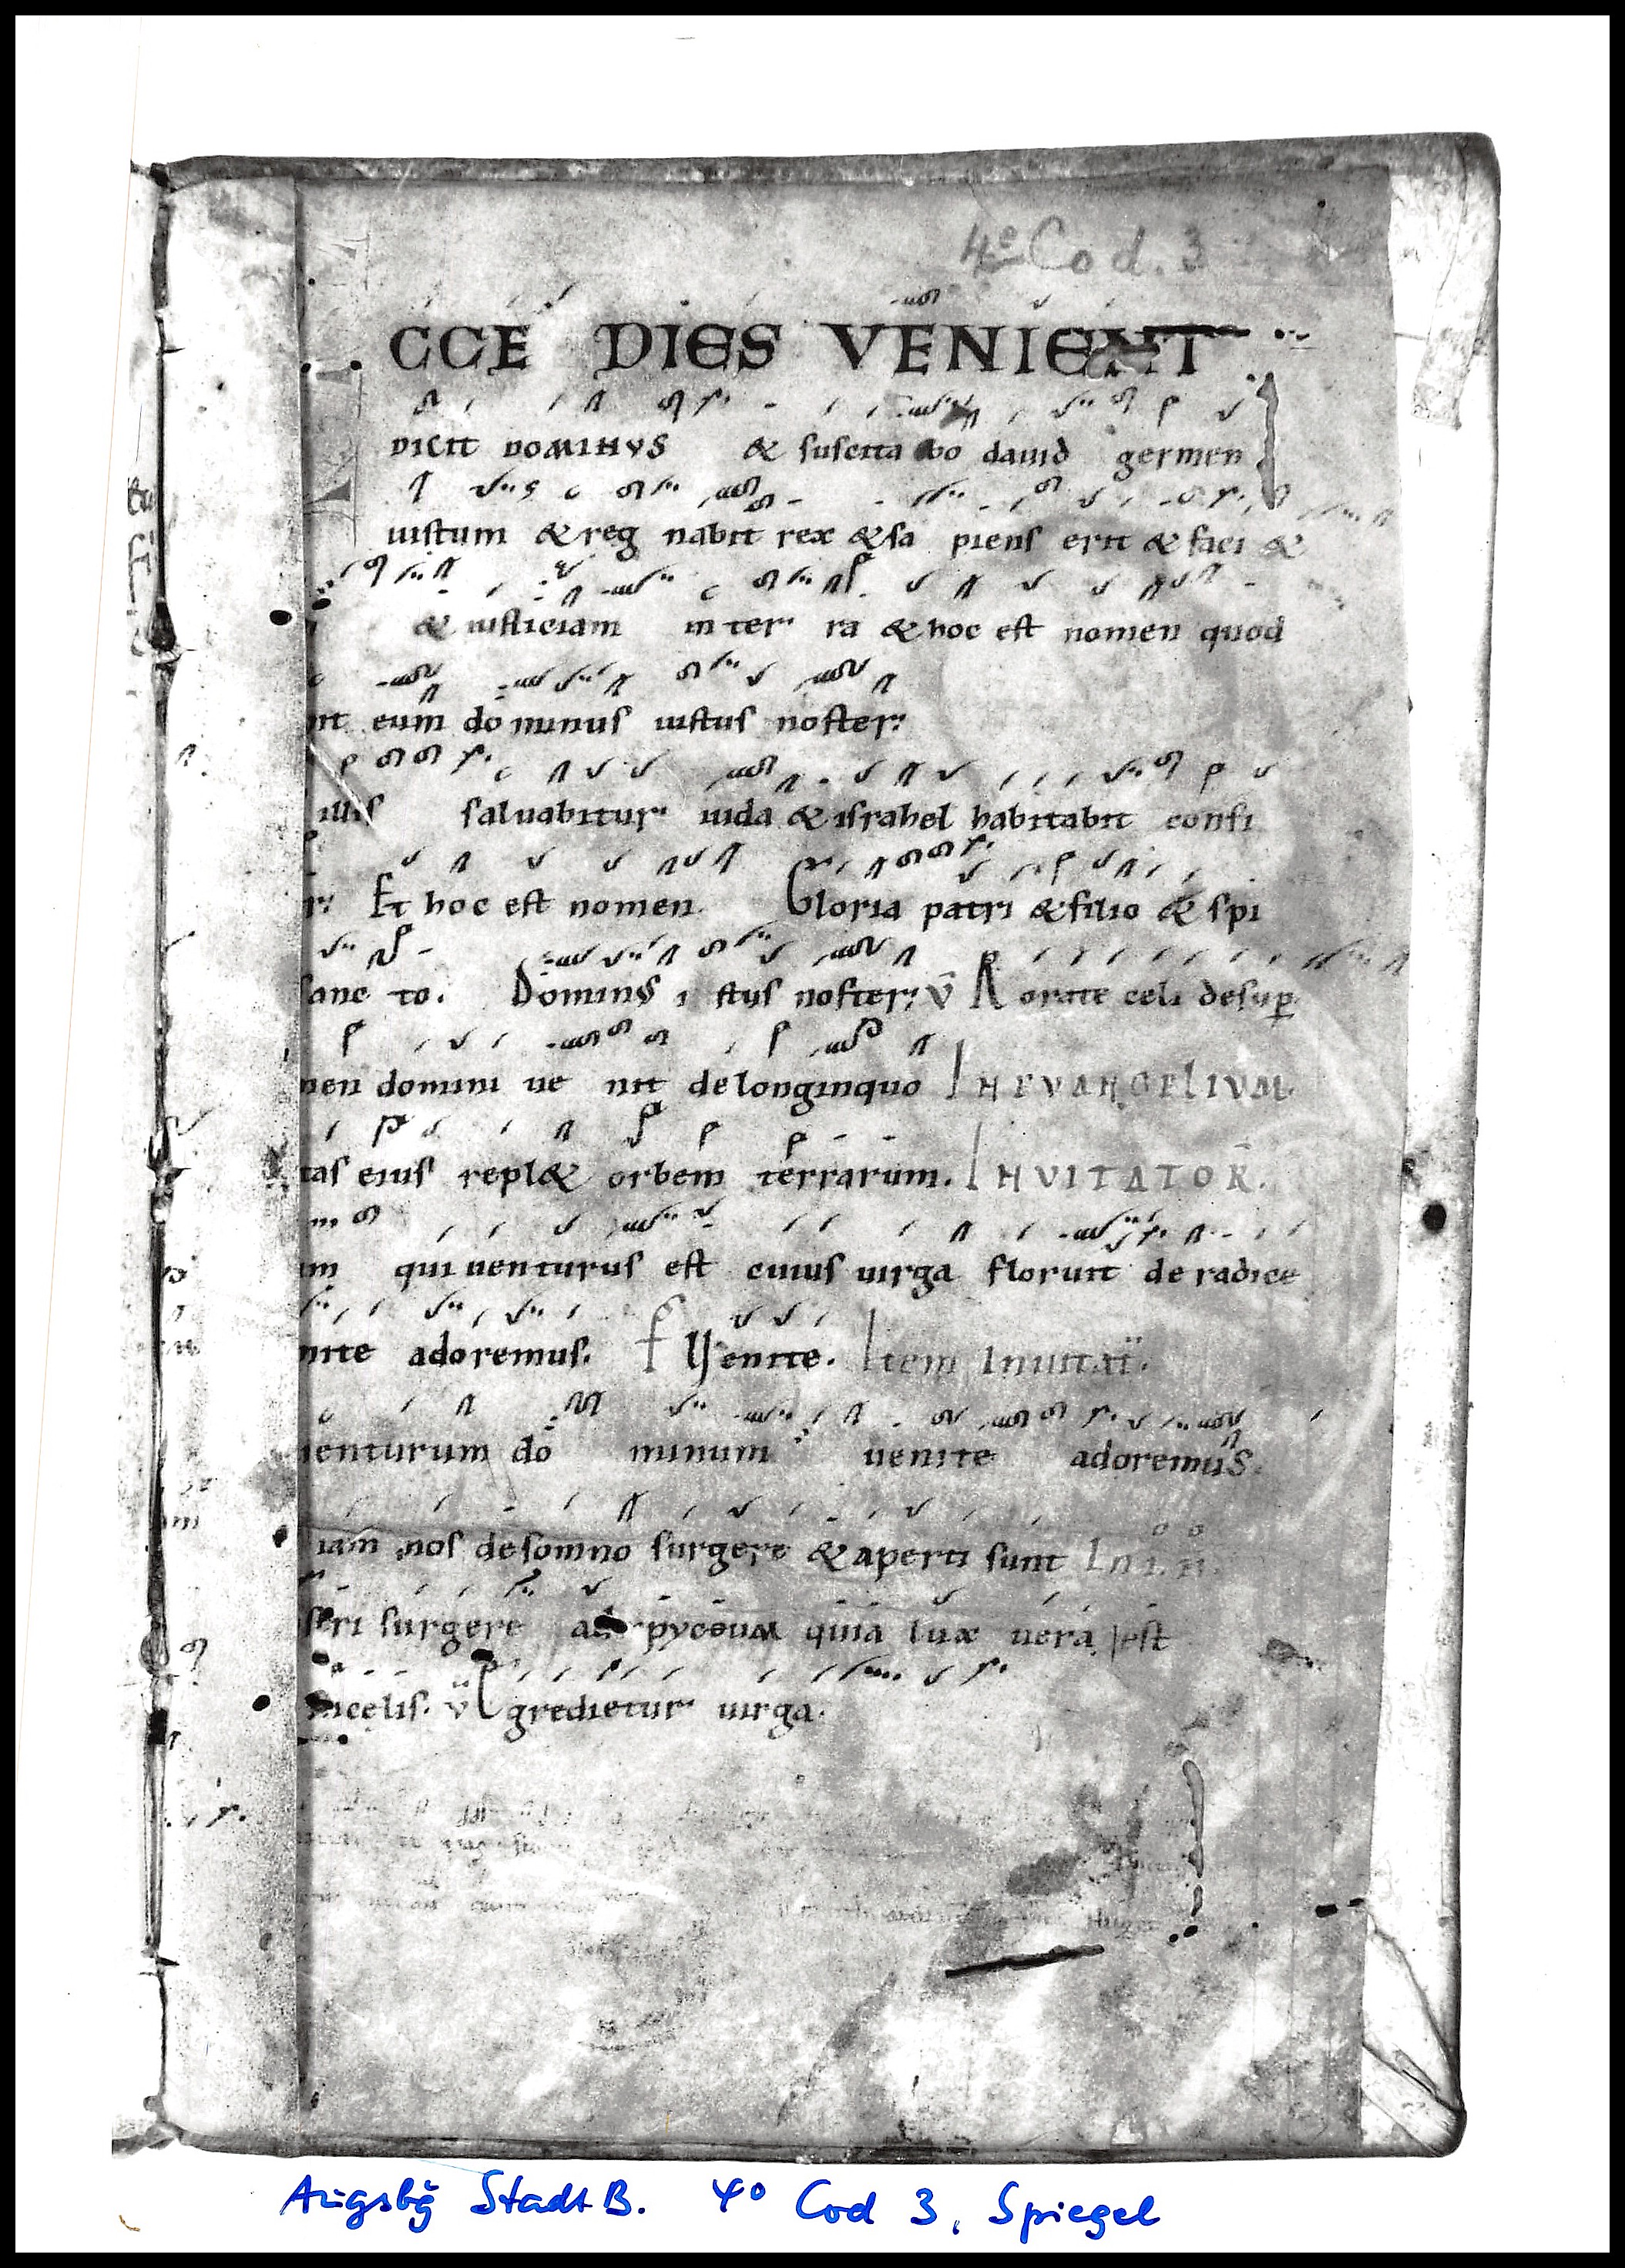 4º Cod. 3
CCE DIES VENIENT
DICIT DOMINVS & suscita bo dauid germen
iustum & reg nabit rex & sa piens erit & faci &
& iusticiam in ter ra & hoc est nomen quod
nt eum do minus iustus noster:
illis saluabitur iuda & israhel habitabit confi
r: Et hoc est nomen. Gloria patri & filio & spi
sanc to. Dominus i stus noster: v̄ Rorate celi desup
men domini ue nit de longinquo IN EVANGELIVM.
tas eius repl& orbem terrarum. INVITATOR̄.
um qui uenturus est cuius uirga floruit de radice
nite adoremus. Venite. Item Inuitat̄.
uenturum do minum uenite adoremus.
iam nos de somno surgere & aperti sunt
surgere quia lux uera est
celis. v̄ Egredietur uirga.
Augsbg StadtB. 4º Cod 3, Spiegel